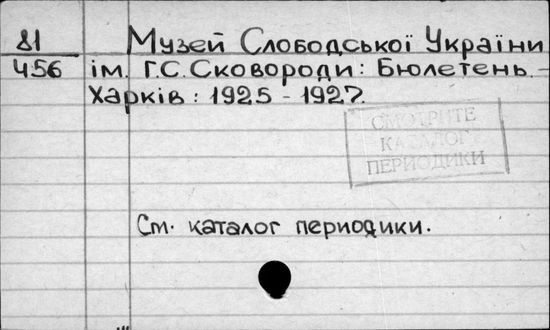 81
456
Музей Слободської України
ім. Г.С. Сковороди: Бюлетень. –
Харків: 1925 – 1927.
СМОТРИТЕ
КАТАЛОГ
ПЕРИОДИКИ
См. каталог периодики.